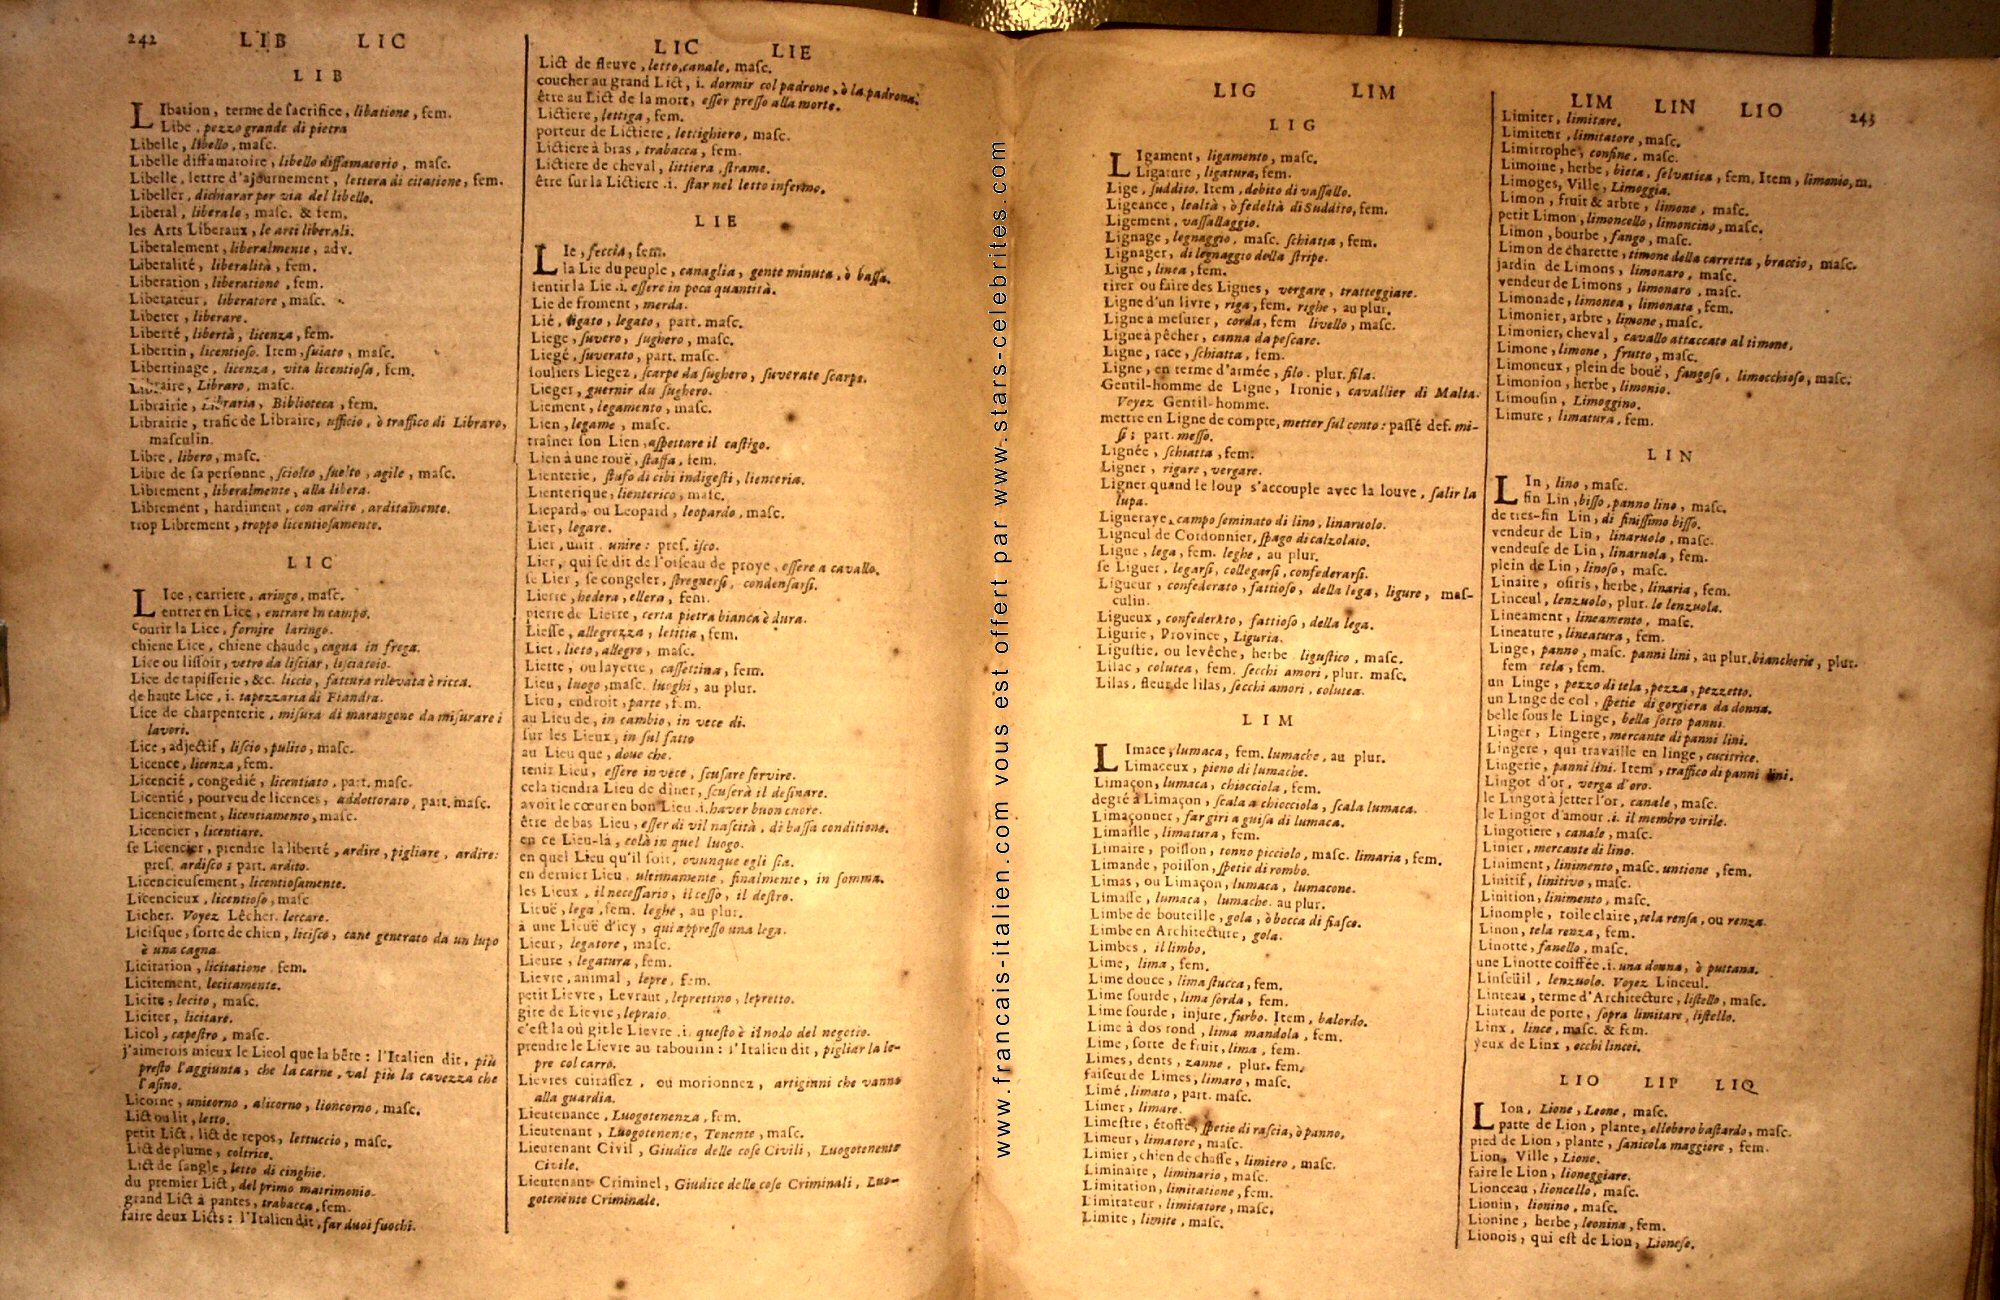 242 LIB LIC
LIB
LIbation, terme de sacrifice, libatione, fem.
Libe, pezzo grande di pietra
Libelle, libello, masc.
Libelle diffamatoire, libello diffamatorio, masc.
Libelle, lettre d'ajournement, lettera di citatione, fem.
Libeller, dichiarar per via del libello.
Liberal, liberale, masc. & fem.
les Arts Liberaux, le arti liberali.
Liberalement, liberalmente, adv.
Liberalité, liberalità, fem.
Liberation, liberatione, fem.
Liberateur, liberatore, masc.
Liberer, liberare.
Liberté, libertà, licenza, fem.
Libertin, licentioso. Item, suiato, masc.
Libertinage, licenza, vita licentiosa, fem.
Libraire, Libraro, masc.
Librairie, Libraria, Biblioteca, fem.
Librairie, trafic de Libraire, ufficio, ò traffico di Libraro,
masculin.
Libre, libero, masc.
Libre de sa personne, sciolto, suelto, agile, masc.
Librement, liberalmente, alla libera.
Librement, hardiment, con ardire, arditamente.
trop Librement, troppo licentiosamente.
LIC
LIce, carriere, aringo, masc.
entrer en Lice, entrare in campo.
courir la Lice, fornire laringo.
chiene Lice, chiene chaude, cagna in frega.
Lice ou lissoir, vetro da lisciar, lisciatoio.
Lice de tapisserie, &c. liccio, fattura rilevata è ricca.
de haute Lice, i. tapezzaria di Fiandra.
Lice de charpenterie, misura di marangone da misurare i
lavori.
Lice, adjectif, liscio, pulito, masc.
Licence, licenza, fem.
Licencié, congedié, licentiato, part. masc.
Licentié, pourveu de licences, addottorato, part. masc.
Licenciement, licentiamento, masc.
Licencier, licentiare.
se Licencier, prendre la liberté, ardire, pigliare, ardire:
pres. ardisco; part. ardito.
Licencieusement, licentiosamente.
Licencieux, licentioso, masc
Licher. Voyez Lêcher. leccare.
Licisque, sorte de chien, licisco, cane generato da un lupo
è una cagna.
Licitation, licitatione fem.
Licitement, lecitamente.
Licite, lecito, masc.
Liciter, licitare.
Licol, capestro, masc.
j'aimerois mieux le Licol que la bête: l'Italien dit, più
presto l'aggiunta, che la carne, val più la cavezza che
l'asino.
Licorne, unicorno, alicorno, lioncorno, masc.
Lict ou lit, letto.
petit Lict, lict de repos, lettuccio, masc.
Lict de plume, coltrice.
Lict de sangle, letto di cinghie.
du premier Lict, del primo matrimonio.
grand Lict à pantes, trabacca, fem.
faire deux Licts: l'Italien dit, far duoi fuochi.
LIC LIE
Lict de fleuve, letto, canale, masc.
coucher au grand Lict, i. dormir col padrone, ò la padrona.
être au Lict de la mort, esser presso alla morte.
Lictiere, lettiga, fem.
porteur de Lictiere, lettighiero, masc.
Lictiere à bras, trabacca, fem.
Lictiere de cheval, littiera, strame.
être sur la Lictiere .i. star nel letto infermo.
LIE
LIe, feccia, fem.
la Lie du peuple, canaglia, gente minuta, ò bassa.
sentir la Lie .i. essere in poca quantità.
Lie de froment, merda.
Lié, ligato, legato, part. masc.
Liege, suvero, sughero, masc.
Liegé, suverato, part. masc.
souliers Liegez, scarpe da sughero, suverate scarpe.
Lieger, guernir du sughero.
Liement, legamento, masc.
Lien, legame, masc.
traîner son Lien, aspettare il castigo.
Lien à une rouë, staffa, fem.
Lienterie, stafo di cibi indigesti, lienteria.
Lienterique, lienterico, masc.
Liepard, ou Leopard, leopardo, masc.
Lier, legare.
Lier, unir, unire: pres. isco.
Lier, qui se dit de l'oiseau de proye, essere a cavallo.
se Lier, se congeler, stregnersi, condensarsi.
Lierre, hedera, ellera, fem.
pierre de Lierre, certa pietra bianca è dura.
Liesse, allegrezza, letitia, fem.
Liet, lieto, allegro, masc.
Liette, ou layette, cassettina, fem.
Lieu, luogo, masc. luoghi, au plur.
Lieu, endroit, parte, fem.
au Lieu de, in cambio, in vece di.
sur les Lieux, in sul fatto
au Lieu que, doue che.
tenir Lieu, essere in vece, scusare servire.
cela tiendra Lieu de diner, scuserà il desinare.
avoir le cœur en bon Lieu .i. haver buon cuore.
être de bas Lieu, esser di vil nascità, di bassa conditione.
en ce Lieu-là, colà in quel luogo.
en quel Lieu qu'il soit, ovunque egli sia.
en dernier Lieu, ultimamente, finalmente, in somma.
les Lieux, il necessario, il cesso, il destro.
Lieuë, lega, fem. leghe, au plur.
à une Lieuë d'icy, qui appresso una lega.
Lieur, legatore, masc.
Lieure, legatura, fem.
Lievre, animal, lepre, fem.
petit Lievre, Levraut, leprettino, lepretto.
gite de Lievre, lepraio.
c'est là où git le Lievre .i. questo è il nodo del negotio.
prendre le Lievre au tabourin: l'Italien dit, pigliar la le-
pre col carro.
Lievres cuirassez, ou morionnez, artiginni che vanno
alla guardia.
Lieutenance, Luogotenenza, fem.
Lieutenant, Luogotenente, Tenente, masc.
Lieutenant Civil, Giudice delle cose Civili, Luogotenente
Civile.
Lieutenant Criminel, Giudice delle cose Criminali, Luo-
gotenente Criminale.
www.francais-italien.com vous est offert par www.stars-celebrites.com
LIG LIM
LIG
LIgament, ligamento, masc.
Ligature, ligatura, fem.
Lige, suddito. Item, debito di vassallo.
Ligeance, lealtà, ò fedeltà di Suddito, fem.
Ligement, vassallaggio.
Lignage, legnaggio, masc. schiatta, fem.
Lignager, di legnaggio della stirpe.
Ligne, linea, fem.
tirer ou faire des Lignes, vergare, tratteggiare.
Ligne d'un livre, riga, fem. righe, au plur.
Ligne a mesurer, corda, fem livello, masc.
Ligne à pêcher, canna da pescare.
Ligne, race, schiatta, fem.
Ligne, en terme d'armée, filo. plur. fila.
Gentil-homme de Ligne, Ironie, cavallier di Malta.
Voyez Gentil-homme.
mettre en Ligne de compte, metter sul conto: passé def. mi-
si; part. messo.
Lignée, schiatta, fem.
Ligner, rigare, vergare.
Ligner quand le loup s'accouple avec la louve, salir la
lupa.
Ligneraye, campo seminato di lino, linaruolo.
Ligneul de Cordonnier, spago di calzolaio.
Ligue, lega, fem. leghe, au plur.
se Liguer, legarsi, collegarsi, confederarsi.
Ligueur, confederato, fattioso, della lega, ligure, mas-
culin.
Ligueux, confederato, fattioso, della lega.
Ligurie, Province, Liguria.
Ligustie, ou levêche, herbe ligustico, masc.
Lilac, colutea, fem. secchi amori, plur. masc.
Lilas, fleur de lilas, secchi amori, colutea.
LIM
LImace, lumaca, fem. lumache, au plur.
Limaceux, pieno di lumache.
Limaçon, lumaca, chiocciola, fem.
degré à Limaçon, scala a chiocciola, scala lumaca.
Limaçonner, far giri a guisa di lumaca.
Limaille, limatura, fem.
Limaire, poisson, tonno picciolo, masc. limaria, fem.
Limande, poisson, spetie di rombo.
Limas, ou Limaçon, lumaca, lumacone.
Limasse, lumaca, lumache. au plur.
Limbe de bouteille, gola, ò bocca di fiasco.
Limbe en Architecture, gola.
Limbes, il limbo.
Lime, lima, fem.
Lime douce, lima stucca, fem.
Lime sourde, lima sorda, fem.
Lime sourde, injure, furbo. Item, balordo.
Lime à dos rond, lima mandola, fem.
Lime, sorte de fruit, lima, fem.
Limes, dents, zanne, plur. fem.
faiseur de Limes, limaro, masc.
Limé, limato, part. masc.
Limer, limare.
Limestre, étoffe, spetie di rascia, ò panno.
Limeur, limatore, masc.
Limier, chien de chasse, limiero, masc.
Liminaire, liminario, masc.
Limitation, limitatione, fem.
Limitateur, limitatore, masc.
Limite, limite, masc.
LIM LIN LIO 243
Limiter, limitare.
Limiteur, limitatore, masc.
Limitrophe, confine, masc.
Limoine, herbe, bieta, selvatica, fem. Item, limonio, m.
Limoges, Ville, Limoggia.
Limon, fruit & arbre, limone, masc.
petit Limon, limoncello, limoncino, masc.
Limon, bourbe, fango, masc.
Limon de charette, timone della carretta, braccio, masc.
jardin de Limons, limonaro, masc.
vendeur de Limons, limonaro, masc.
Limonade, limonea, limonata, fem.
Limonier, arbre, limone, masc.
Limonier, cheval, cavallo attaccato al timone.
Limone, limone, frutto, masc.
Limoneux, plein de bouë, fangoso, limocchioso, masc.
Limonion, herbe, limonio.
Limousin, Limoggino.
Limure, limatura, fem.
LIN
LIn, lino, masc.
fin Lin, bisso, panno lino, masc.
de tres-fin Lin, di finissimo bisso.
vendeur de Lin, linaruolo, masc.
vendeuse de Lin, linaruola, fem.
plein de Lin, linoso, masc.
Linaire, osiris, herbe, linaria, fem.
Linceul, lenzuolo, plur. le lenzuola.
Lineament, lineamento, masc.
Lineature, lineatura, fem.
Linge, panno, masc. panni lini, au plur. biancherie, plur.
fem tela, fem.
un Linge, pezzo di tela, pezza, pezzetto.
un Linge de col, spetie di gorgiera da donna.
belle sous le Linge, bella sotto panni.
Linger, Lingere, mercante di panni lini.
Lingere, qui travaille en linge, cucitrice.
Lingerie, panni lini. Item, traffico di panni lini.
Lingot d'or, verga d'oro.
le Lingot à jetter l'or, canale, masc.
le Lingot d'amour .i. il membro virile.
Lingotiere, canale, masc.
Linier, mercante di lino.
Liniment, linimento, masc. untione, fem.
Linitif, linitivo, masc.
Linition, linimento, masc.
Linomple, toile claire, tela rensa, ou renza.
Linon, tela renza, fem.
Linotte, fanello, masc.
une Linotte coiffée .i. una donna, ò puttana.
Linseüil, lenzuolo. Voyez Linceul.
Linteau, terme d'Architecture, listello, masc.
Linteau de porte, sopra limitare, listello.
Linx, lince, masc. & fem.
yeux de Linx, occhi lincei.
LIO LIP LIQ
LIon, Lione, Leone, masc.
patte de Lion, plante, elleboro bastardo, masc.
pied de Lion, plante, sanicola maggiore, fem.
Lion, Ville, Lione.
faire le Lion, lioneggiare.
Lionceau, lioncello, masc.
Lionin, lionino, masc.
Lionine, herbe, leonina, fem.
Lionois, qui est de Lion, Lionese.